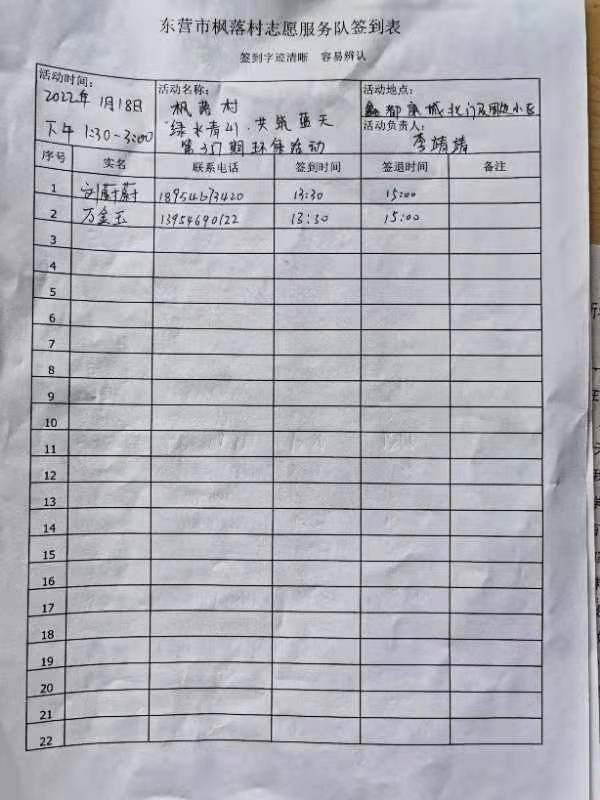 东营市枫落村志愿服务队签到表
签到字迹清晰 容易辨认
活动时间：
2022年1月18日
下午1:30~3:00
活动名称：
枫落村
"绿水青山.共筑蓝天
第317期环保活动
活动地点：
鑫都康城北门及周边小区
活动负责人：
李靖靖
序号 实名 联系电话 签到时间 签退时间 备注
1 刘蔚蔚 13:30 15:00
2 万金玉 13954690122 13:30 15:00
3
4
5
6
7
8
9
10
11
12
13
14
15
16
17
18
19
20
21
22